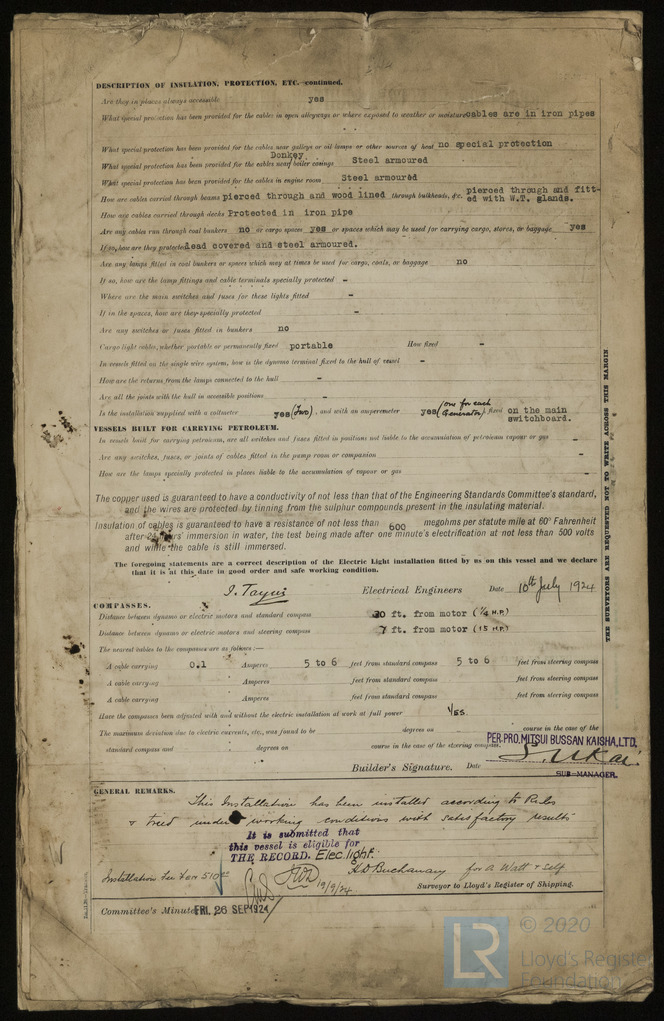 DESCRIPTION OF INSULATION, PROTECTION, ETC.—continued.
Are they in places always accessible yes
What special protection has been provided for the cables in open alleyways or where exposed to weather or moisture cables are in iron pipes
What special protection has been provided for the cables near galleys or oil lamps or other sources of heat no special protection
What special protection has been provided for the cables near Donkey boiler casings Steel armoured
What special protection has been provided for the cables in engine room Steel armoured
How are cables carried through beams pierced through and wood lined through bulkheads, &c. pierced through and fitt-
ed with W.T. glands.
How are cables carried through decks Protected in iron pipe
Are any cables run through coal bunkers no or cargo spaces yes or spaces which may be used for carrying cargo, stores, or baggage yes
If so, how are they protected lead covered and steel armoured.
Are any lamps fitted in coal bunkers or spaces which may at times be used for cargo, coals, or baggage no
If so, how are the lamp fittings and cable terminals specially protected -
Where are the main switches and fuses for these lights fitted -
If in the spaces, how are they specially protected -
Are any switches or fuses fitted in bunkers no
Cargo light cables, whether portable or permanently fixed portable How fixed -
In vessels fitted on the single wire system, how is the dynamo terminal fixed to the hull of vessel -
How are the returns from the lamps connected to the hull -
Are all the joints with the hull in accessible positions -
Is the installation supplied with a voltmeter yes (Two), and with an amperemeter yes (one for each Generator), fixed on the main
switchboard.
VESSELS BUILT FOR CARRYING PETROLEUM.
In vessels built for carrying petroleum, are all switches and fuses fitted in positions not liable to the accumulation of petroleum vapour or gas -
Are any switches, fuses, or joints of cables fitted in the pump room or companion -
How are the lamps specially protected in places liable to the accumulation of vapour or gas -
The copper used is guaranteed to have a conductivity of not less than that of the Engineering Standards Committee's standard,
and the wires are protected by tinning from the sulphur compounds present in the insulating material.
Insulation of cables is guaranteed to have a resistance of not less than 600 megohms per statute mile at 60° Fahrenheit
after 24 hours' immersion in water, the test being made after one minute's electrification at not less than 500 volts
and while the cable is still immersed.
The foregoing statements are a correct description of the Electric Light installation fitted by us on this vessel and we declare
that it is at this date in good order and safe working condition.
Electrical Engineers Date 10th July 1924
COMPASSES.
Distance between dynamo or electric motors and standard compass 20 ft. from motor (1/4 H.P.)
Distance between dynamo or electric motors and steering compass 7 ft. from motor (15 H.P.)
The nearest cables to the compasses are as follows:—
A cable carrying 0.1 Amperes 5 to 6 feet from standard compass 5 to 6 feet from steering compass
A cable carrying Amperes feet from standard compass feet from steering compass
A cable carrying Amperes feet from standard compass feet from steering compass
Have the compasses been adjusted with and without the electric installation at work at full power Yes.
The maximum deviation due to electric currents, etc., was found to be degrees on course in the case of the
standard compass and degrees on course in the case of the steering compass.
PER PRO. MITSUI BUSSAN KAISHA, LTD.
Builder's Signature. Date
SUB-MANAGER.
GENERAL REMARKS.
This Installation has been installed according to Rules
& tried under working conditions with satisfactory results
It is submitted that
this vessel is eligible for
THE RECORD. Elec. light.
Installation Fee
19/9/24
H.D. Buchanan for A Watt & Self
Surveyor to Lloyd's Register of Shipping.
Committee's Minute FRI. 26 SEP 1924
THE SURVEYORS ARE REQUESTED NOT TO WRITE ACROSS THIS MARGIN
LR
© 2020
Lloyd's Register
Foundation